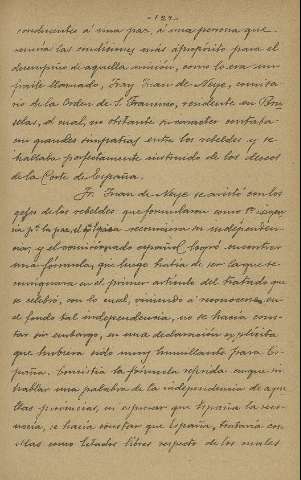 -127-
conducentes á una paz, á una persona que
reunía las condiciones más apropósito para el
desempeño de aquella misión, como lo era un
fraile llamado, Fray Juan de Neye, comisa
rio de la Orden de S. Francisco, residente en Bru
selas, el cual, no obstante su carácter contaba
con grandes simpatías entre los rebeldes y se
hallaba perfectamente instruido de los deseos
de la Corte de España.
Fr. Juan de Neye se avistó con los
gefes de los rebeldes que formularon como 1ª
pª la paz, el que España reconociera su independen
cia, y el comisionado español, logró encontrar
una fórmula, que luego había de ser la que se
consignara en el primer artículo del tratado que
se celebró, con lo cual, viniendo á reconocerse, en
el fondo tal independencia, no se hacía cons-
tar sin embargo, en una declaración explícita
que hubiera sido muy humillante para Es-
paña. Consistía la fórmula referida en que sin
hablar una palabra de la independencia de aque
llas provincias, ni expresar que España la reco-
nocía, se hacía constar que España, trataría con
ellas como Estados libres respecto de los cuales